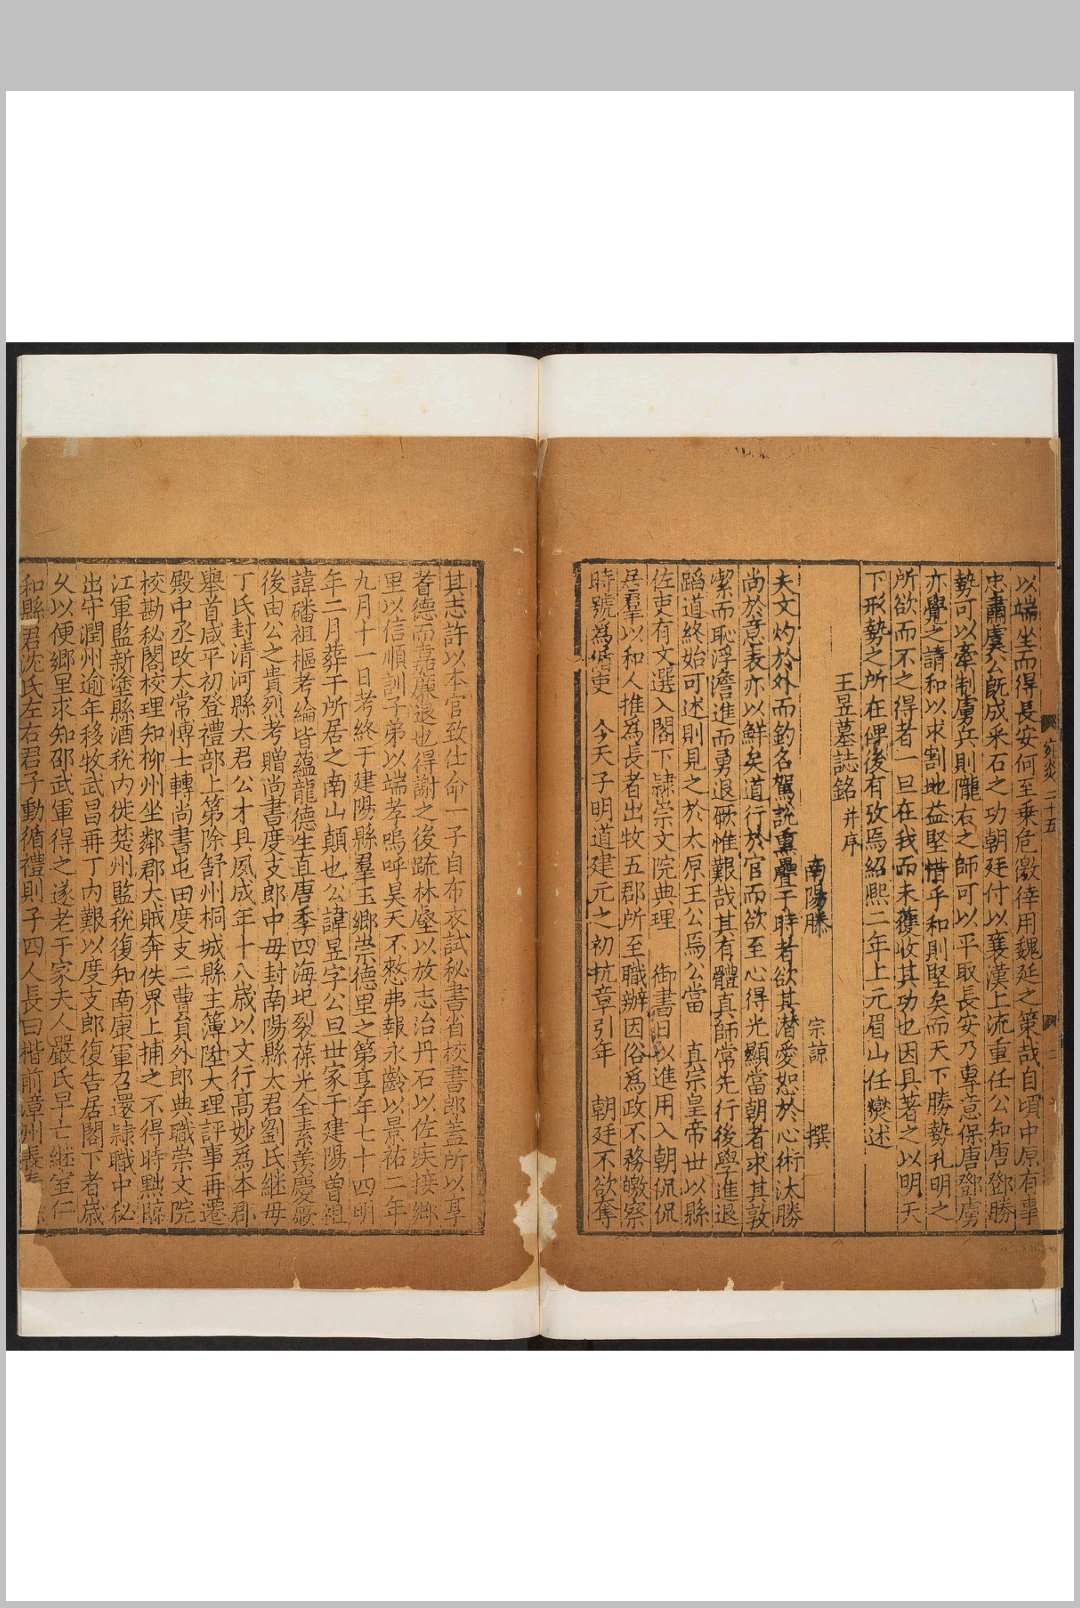 以端坐而得長安何至乗危徼倖用魏延之策哉自頃中原有事
忠肅虞公旣成采石之功朝廷付以襄漢上流重任公知唐鄧勝
勢可以牽制虜兵則隴右之師可以平取長安乃專意保唐鄧虜
亦覺之請和以求割地益堅惜乎和則堅矣而天下勝勢孔明之
所欲而不之得者一旦在我而未獲收其功也因具著之以明天
下形勢之所在俾後有攷焉紹熙二年上元眉山任燮述
王昱墓誌銘 并序
南陽滕 宗諒 撰
夫文灼於外而釣名駕說熏疊于時者欲其潜愛恕於心術汰勝
尚於意表亦以鮮矣道行於官而欲至心得光顯當朝者求其敦
潔而恥浮澹進而勇退厥惟艱哉其有體真師常先行後學進退
蹈道終始可述則見之於太原王公焉公當 真宗皇帝世以縣
佐吏有文選入閣下隷崇文院典理 御書日以進用入朝侃侃
居羣以和人推為長者出牧五郡所至職辦因俗為政不務皦察
時號為循吏 今天子明道建元之初抗章引年 朝廷不欲奪
其志許以本官致仕命一子自布衣試秘書省校書郎盖所以享
耆德而嘉廉退也得謝之後疏林壑以放志治丹石以佐疾接鄉
里以信順訓子弟以端孝嗚呼昊天不憗弗報永齡以景祐二年
九月十一日考終于建陽縣羣玉鄉崇德里之第享年七十四明
年二月葬于所居之南山顛也公諱昱字公旦世家于建陽曾祖
諱磻祖樞考綸皆蘊龍德生直唐季四海圯裂葆光全素羡慶厥
後由公之貴烈考贈尚書度支郎中毋封南陽縣太君劉氏継毋
丁氏封清河縣太君公才具夙成年十八歳以文行髙妙為本郡
舉首咸平初登禮部上第除舒州桐城縣主簿陞大理評事再遷
殿中丞改太常博士轉尚書屯田度支二曹貟外郎典職崇文院
校勘秘閣校理知柳州坐鄰郡大賊奔佚界上捕之不得時黜臨
江軍監新塗縣酒稅内徙楚州監稅復知南康軍召還隷職中秘
出守潤州逾年移牧武昌再丁内艱以度支郎復告居閣下者歳
乆以便鄉里求知邵武軍得之遂老于家夫人嚴氏早亡継室仁
和縣君沈氏左右君子動循禮則子四人長曰楷前漳州